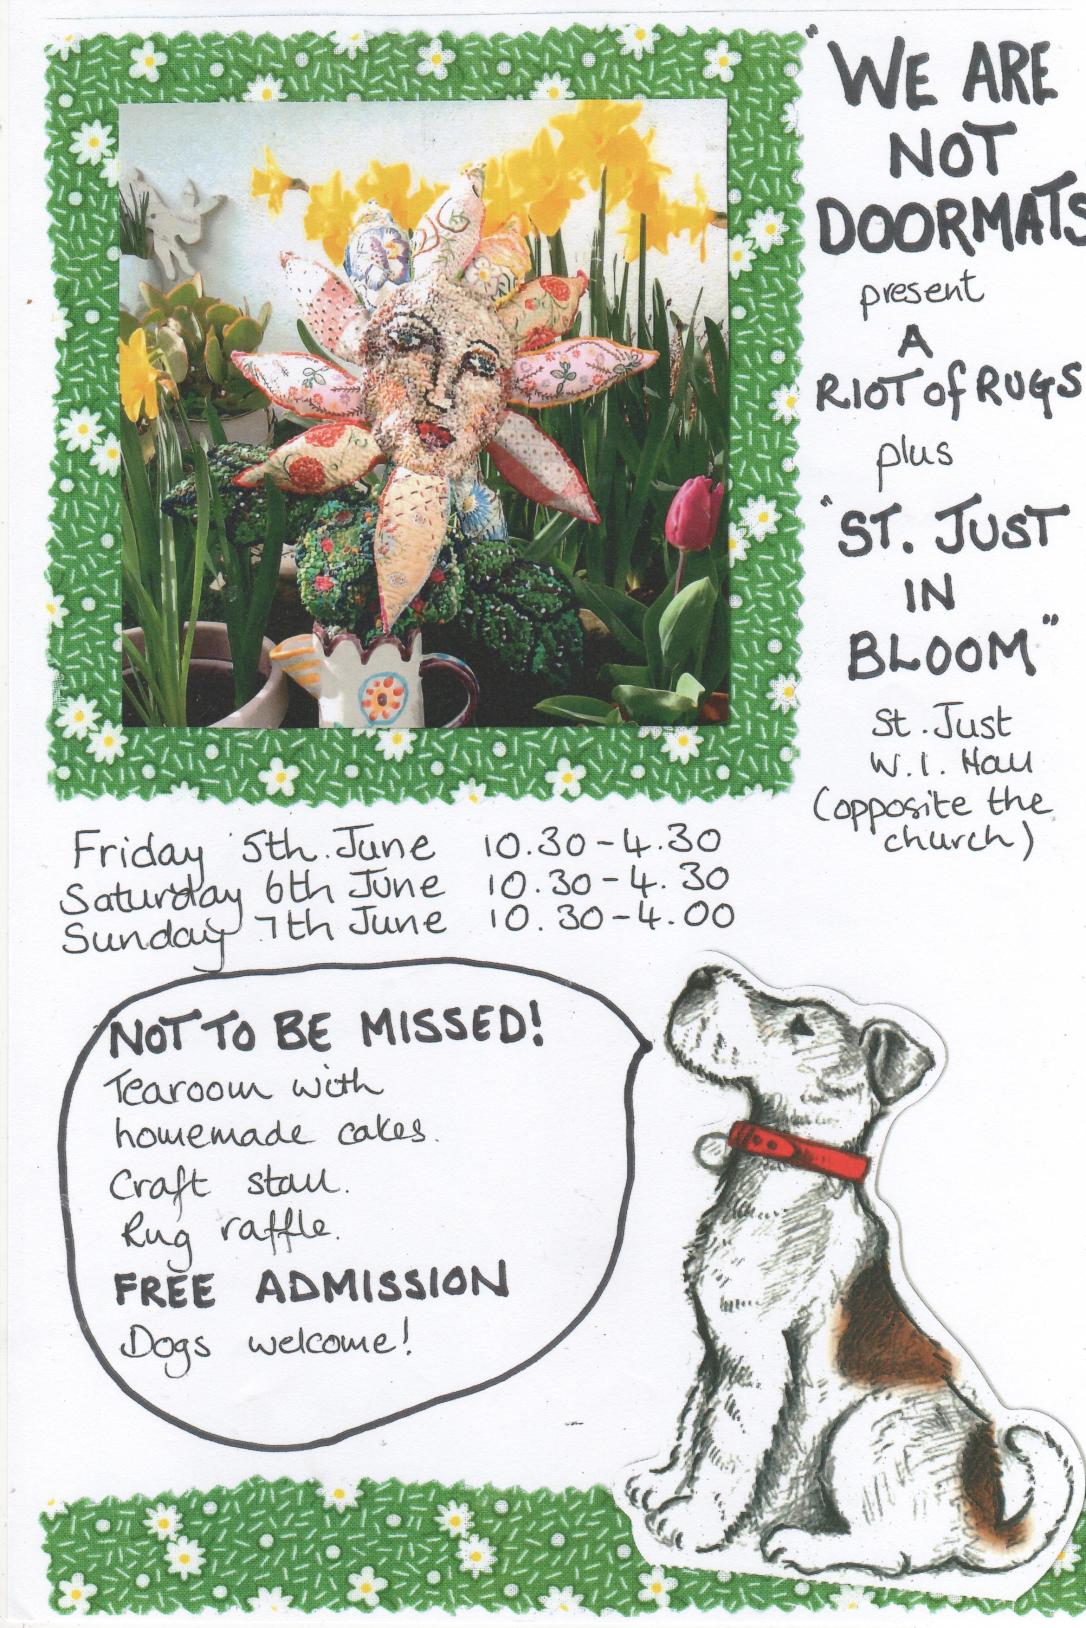 "WE ARE
NOT
DOORMATS
present
A
RIOT of RUGS
plus
"ST. JUST
IN
BLOOM"
St. Just
W.I. Hall
(opposite the
church)
Friday 5th. June 10.30-4.30
Saturday 6th June 10.30-4.30
Sunday 7th June 10.30-4.00
NOT TO BE MISSED!
Tearoom with
homemade cakes.
Craft stall.
Rug raffle.
FREE ADMISSION
Dogs welcome!